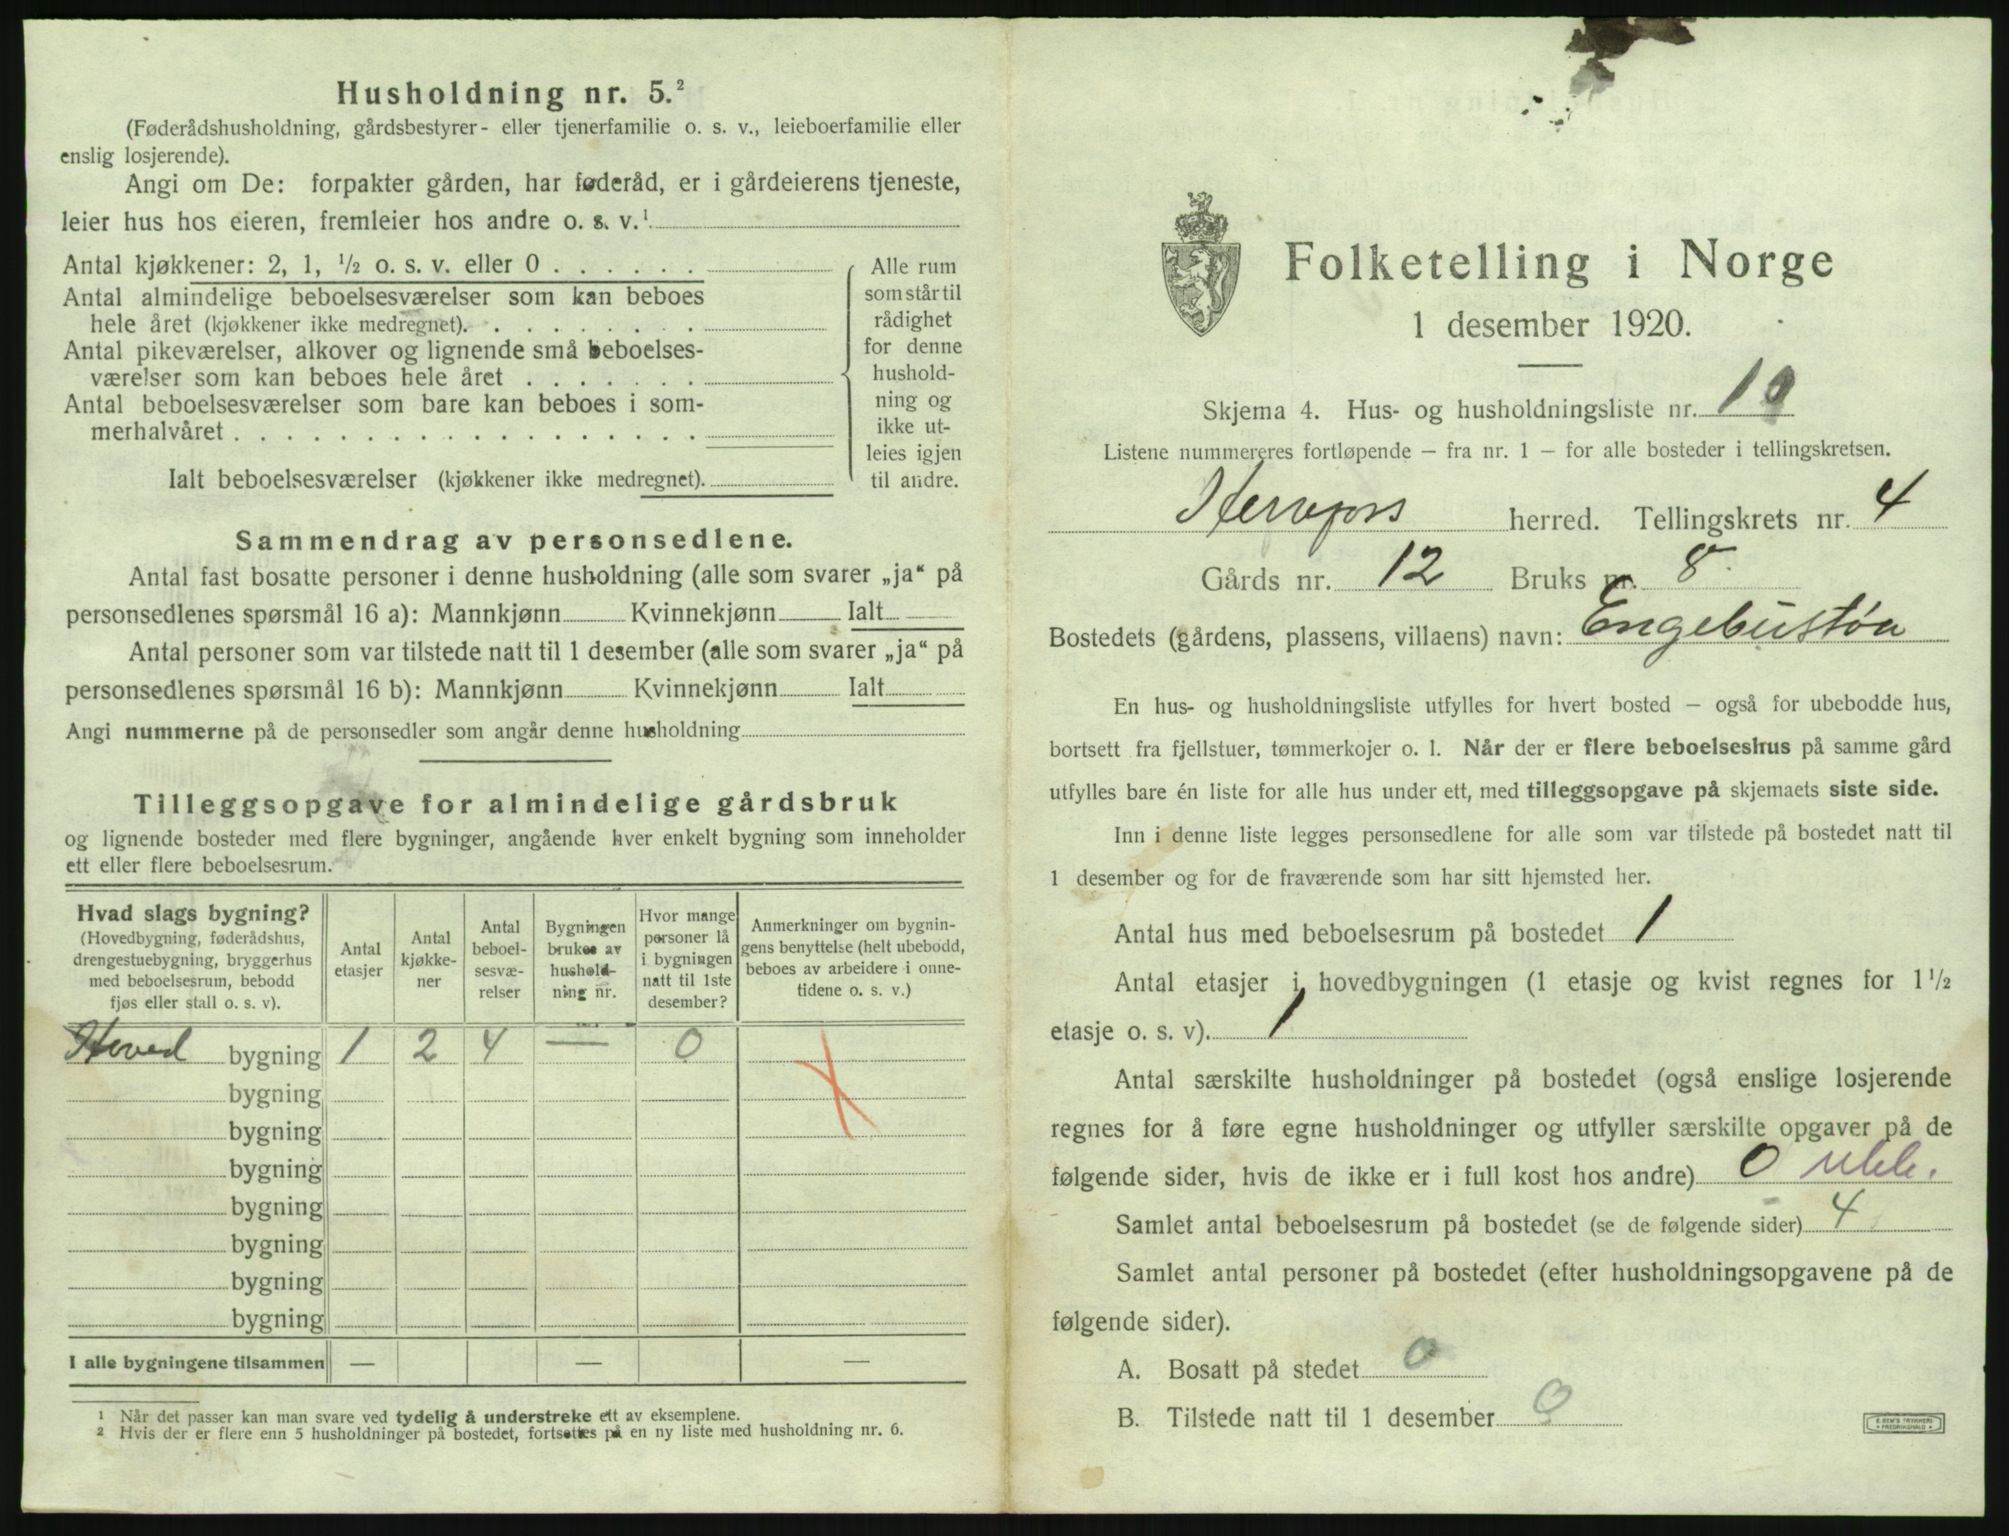 Husholdning nr. 5.²
(Føderådshusholdning, gårdsbestyrer- eller tjenerfamilie o. s. v., leieboerfamilie eller
enslig losjerende).
Angi om De: forpakter gården, har føderåd, er i gårdeierens tjeneste,
leier hus hos eieren, fremleier hos andre o. s. v.¹
Antal kjøkkener: 2, 1, ½ o. s. v. eller 0
Antal almindelige beboelsesværelser som kan beboes
hele året (kjøkkener ikke medregnet).
Antal pikeværelser, alkover og lignende små beboelses-
værelser som kan beboes hele året
Antal beboelsesværelser som bare kan beboes i som-
merhalvåret
Ialt beboelsesværelser (kjøkkener ikke medregnet).
Alle rum
som står til
rådighet
for denne
hushold-
ning og
ikke ut-
leies igjen
til andre.
Sammendrag av personsedlene.
Antal fast bosatte personer i denne husholdning (alle som svarer „ja“ på
personsedlenes spørsmål 16 a): Mannkjønn Kvinnekjønn Ialt
Antal personer som var tilstede natt til 1 desember (alle som svarer „ja“ på
personsedlenes spørsmål 16 b): Mannkjønn Kvinnekjønn Ialt
Angi nummerne på de personsedler som angår denne husholdning
Tilleggsopgave for almindelige gårdsbruk
og lignende bosteder med flere bygninger, angående hver enkelt bygning som inneholder
ett eller flere beboelsesrum.
Hvad slags bygning?
(Hovedbygning, føderådshus,
drengestuebygning, bryggerhus
med beboelsesrum, bebodd
fjøs eller stall o. s. v).
Antal
etasjer
Antal
kjøkke-
ner
Antal
beboel-
sesvæ-
relser
Bygningen
brukes av
hushold-
ning nr.
Hvor mange
personer lå
i bygningen
natt til 1ste
desember?
Anmerkninger om bygnin-
gens benyttelse (helt ubebodd,
beboes av arbeidere i onne-
tidene o. s. v.)
Hoved bygning 1 2 4 — 0
bygning
bygning
bygning
bygning
bygning
bygning
bygning
I alle bygningene tilsammen — — —
¹ Når det passer kan man svare ved tydelig å understreke ett av eksemplene.
² Hvis der er flere enn 5 husholdninger på bostedet, fortsettes på en ny liste med husholdning nr. 6.
Folketelling i Norge
1 desember 1920.
Skjema 4. Hus- og husholdningsliste nr. 10
Listene nummereres fortløpende – fra nr. 1 – for alle bosteder i tellingskretsen.
herred. Tellingskrets nr. 4
Gårds nr. 12 Bruks nr. 8
Bostedets (gårdens, plassens, villaens) navn: Engebustøa
En hus- og husholdningsliste utfylles for hvert bosted – også for ubebodde hus,
bortsett fra fjellstuer, tømmerkojer o. l. Når der er flere beboelseshus på samme gård
utfylles bare én liste for alle hus under ett, med tilleggsopgave på skjemaets siste side.
Inn i denne liste legges personsedlene for alle som var tilstede på bostedet natt til
1 desember og for de fraværende som har sitt hjemsted her.
Antal hus med beboelsesrum på bostedet 1
Antal etasjer i hovedbygningen (1 etasje og kvist regnes for 1½
etasje o. s. v). 1
Antal særskilte husholdninger på bostedet (også enslige losjerende
regnes for å føre egne husholdninger og utfyller særskilte opgaver på de
følgende sider, hvis de ikke er i full kost hos andre) 0
Samlet antal beboelsesrum på bostedet (se de følgende sider) 4
Samlet antal personer på bostedet (efter husholdningsopgavene på de
følgende sider).
A. Bosatt på stedet 0
B. Tilstede natt til 1 desember 0